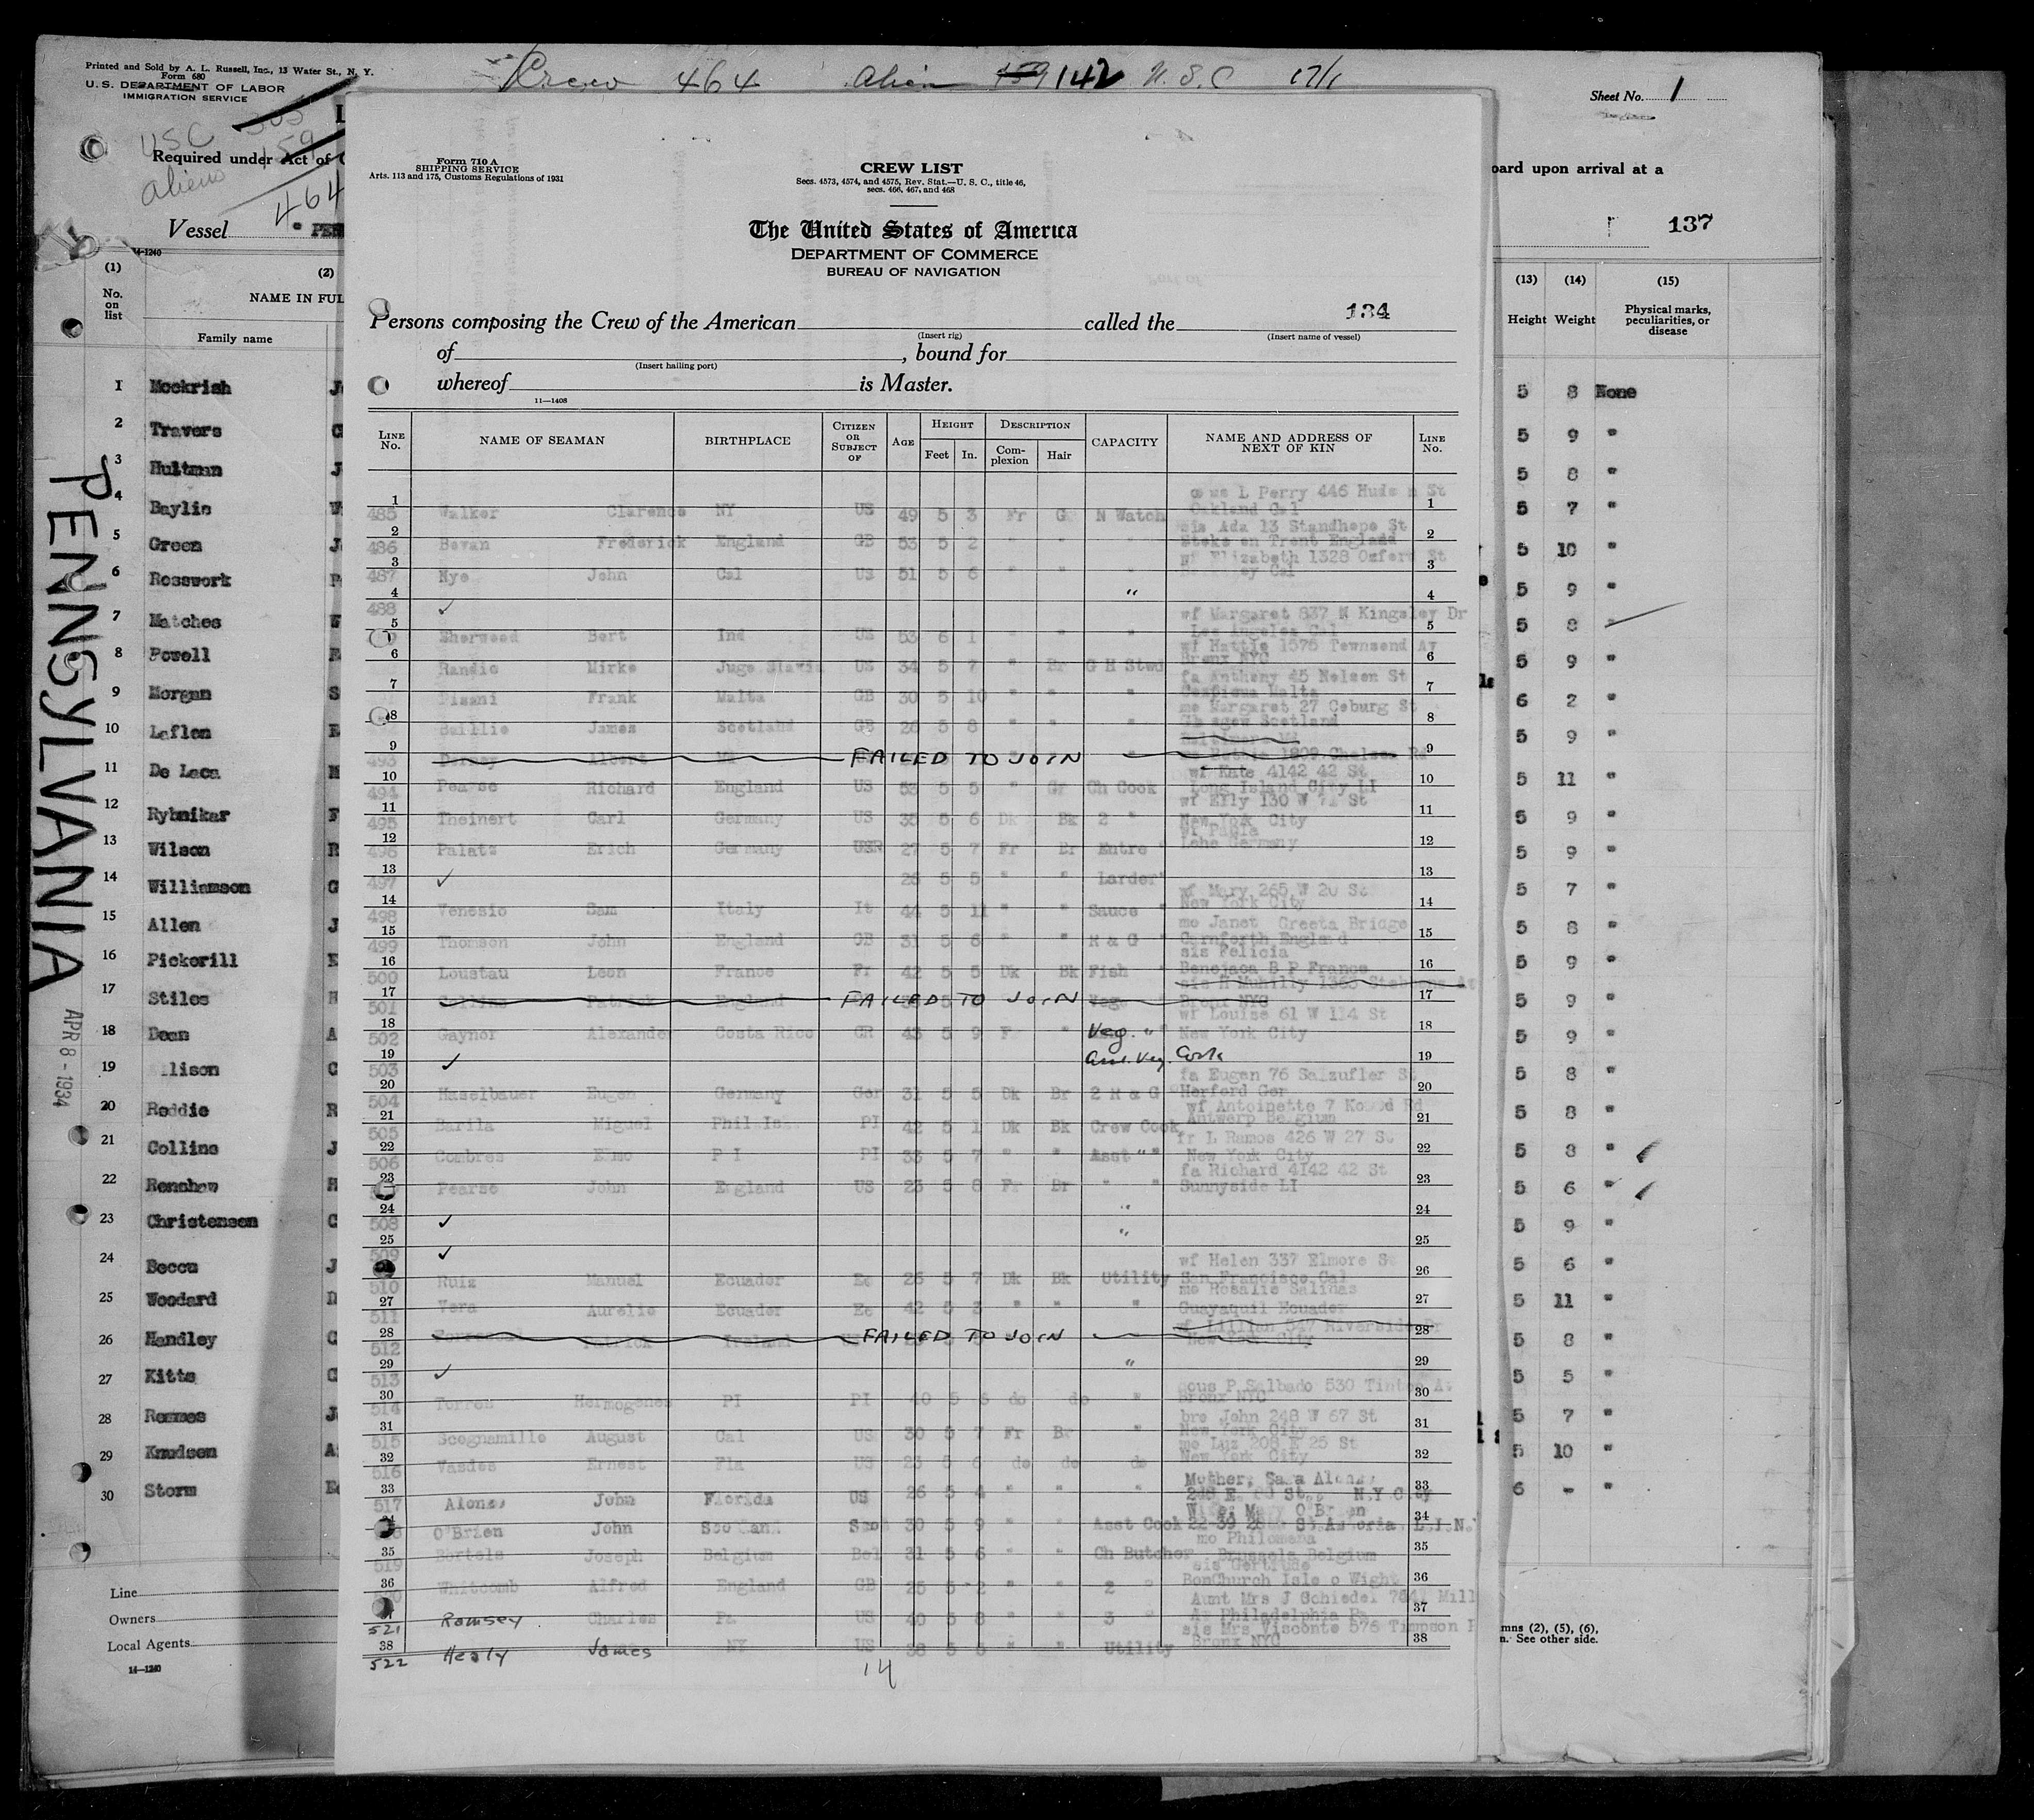 Printed and Sold by A. L. Russell, Inc., 13 Water St., N. Y.
Form 680
U. S. DEPARTMENT OF LABOR
IMMIGRATION SERVICE
Crew 464 Alien 142 U.S.C
Sheet No. 1
USC
aliens 159
464
Required under Act of
oard upon arrival at a
Vessel
137
14-1240
(1) (2)
No. on list
NAME IN FUL
Family name
(13) (14) (15)
Height Weight Physical marks, peculiarities, or disease
PENNSYLVANIA
APR 8 - 1934
1 Mockrish J 5 8 None
2 Travers C 5 9 "
3 Hultman J 5 8 "
4 Baylis W 5 7 "
5 Green J 5 10 "
6 Rosswork 5 9 "
7 Matches 5 8 "
8 Powell 5 9 "
9 Morgan S 6 2 "
10 Laflen 5 9 "
11 De Laca 5 11 "
12 Rybnikar F 5 9 "
13 Wilson R 5 9 "
14 Williamson G 5 7 "
15 Allen J 5 8 "
16 Pickerill 5 9 "
17 Stiles 5 9 "
18 Dean A 5 9 "
19 lison C 5 8 "
20 Reddie R 5 8 "
21 Collins J 5 8 "
22 Renshaw H 5 6 "
23 Christensen C 5 9 "
24 Beccu J 5 6 "
25 Woodard 5 11 "
26 Handley C 5 8 "
27 Kitts C 5 5 "
28 Reemes J 5 7 "
29 Knudsen A 5 10 "
30 Storm 6 - "
Line
Owners
Local Agents
14-1240
mns (2), (5), (6),
n. See other side.
Form 710 A
SHIPPING SERVICE
Arts. 113 and 175, Customs Regulations of 1931
CREW LIST
Secs. 4573, 4574, and 4575, Rev. Stat.—U. S. C., title 46,
secs. 466, 467, and 468
The United States of America
DEPARTMENT OF COMMERCE
BUREAU OF NAVIGATION
134
Persons composing the Crew of the American called the
(Insert rig) (Insert name of vessel)
of , bound for
(Insert hailing port)
whereof is Master.
11—1408
LINE No. NAME OF SEAMAN BIRTHPLACE CITIZEN OR SUBJECT OF AGE HEIGHT Feet In. DESCRIPTION Complexion Hair CAPACITY NAME AND ADDRESS OF NEXT OF KIN LINE No.
L Perry 446 St
1 485 Walker Clarence NY US 49 5 3 Fr G N Watch Oakland Cal 1
sis Ada 13 Standhope St
2 486 Bevan Frederick England GB 53 5 2 " " " Stoke on Trent England 2
wf Elizabeth 1328 Oxford St
3 487 Nye John Cal US 51 5 6 " " " Cal 3
4 488 ✓ " 4
wf Margaret 837 N Kingsley Dr
5 Sherwood Bert Ind US 53 6 1 " " " Los Angeles Cal 5
wf Hattie 1575 Townsend Av
6 Randic Mirko Jugo Slavia US 34 5 7 " Br G H Stwd Bronx NYC 6
fa Anthony 45 Nelson St
7 Pisani Frank Malta GB 30 5 10 " " " Malta 7
mo Margaret 27 Coburg St
8 Baillie James Scotland GB 26 5 8 " " " Glasgow Scotland 8
9 493 Albert FAILED TO JOIN 1809 Chelsea Rd 9
wf Kate 4142 42 St
10 494 Pearse Richard England US 5 5 " Gr Ch Cook Long Island City LI 10
wf Elly 130 W St
11 495 Theinert Carl Germany US 5 6 Dk Bk 2 " New York City 11
wf Paula
12 496 Palatz Erich Germany USR 27 5 7 Fr Br Entre " Lehe Germany 12
13 497 ✓ 26 5 5 " " Larder " 13
wf Mary 265 W 20 St
14 498 Venesio Sam Italy It 44 5 11 " " Sauce " New York City 14
mo Janet Greeta Bridge
15 499 Thomson John England GB 31 5 6 " " R & G " Carnforth England 15
sis Felicia
16 500 Loustau Leon France Fr 42 5 5 Dk Bk Fish " Benejaca B P France 16
17 501 Collins Patrick England FAILED TO JOIN Bronx NYC 17
wf Louise 61 W 114 St
18 502 Gaynor Alexande Costa Rico CR 43 5 9 F " Veg. " New York City 18
19 503 ✓ Asst. Veg. Cook 19
fa Eugen 76 Salzufler St
20 504 Haselbauer Eugen Germany Ger 31 5 5 Dk Br 2 R & G Herford Ger 20
wf Antoinette 7 Rd
21 505 Barila Miguel Phil Is PI 42 5 1 Dk Bk Crew Cook Antwerp Belgium 21
fr L Ramos 426 W 27 St
22 506 Combres Elmo P I PI 33 5 7 " " Asst " " New York City 22
fa Richard 4142 42 St
23 Pearse John England US 23 5 8 Fr Br " " Sunnyside LI 23
24 508 ✓ " 24
25 509 ✓ " 25
wf Helen 337 Elmore St
26 510 Ruiz Manuel Ecuador Ec 26 5 7 Dk Bk Utility San Francisco Cal 26
mo Rosalie Salinas
27 511 Vera Aurelio Ecuador Ec 42 5 3 " " " Guayaquil Ecuador 27
wf Lillian 547 Riverside Dr
28 512 Patrick Ireland FAILED TO JOIN New York City 28
29 513 ✓ " 29
cous P Salbado 530 Tinton Av
30 514 Torren Hermogenes PI PI 40 5 6 do do " Bronx NYC 30
bro John 248 W 67 St
31 515 Scognamillo August Cal US 30 5 7 Fr Br " New York City 31
mo Luz 208 E 25 St
32 516 Vasdes Ernest Fla US 23 5 6 do do do New York City 32
Mother, Sara Alonso
33 517 Alonso John Florida US 26 5 4 " " " E. St., N.Y City 33
Wife, Mary O'Brien
34 O'Brien John Scotland Scot 30 5 9 " " Asst Cook 22-39 St. Astoria, L.I.N. 34
mo Philomena
35 519 Bartels Joseph Belgium Bel 31 5 6 " " Ch Butcher Brussels Belgium 35
sis Gertrude
36 Whitcomb Alfred England GB 25 5 2 " " 2 " BonChurch Isle o Wight 36
Aunt Mrs J Schiedel Mill
37 521 Ramsey Charles Pa US 40 5 8 " " 3 Philadelphia Pa 37
sis Mrs Visconte 576 Timpson P
38 522 Healy James NY US 38 5 5 " " Utility Bronx NYC 38
14